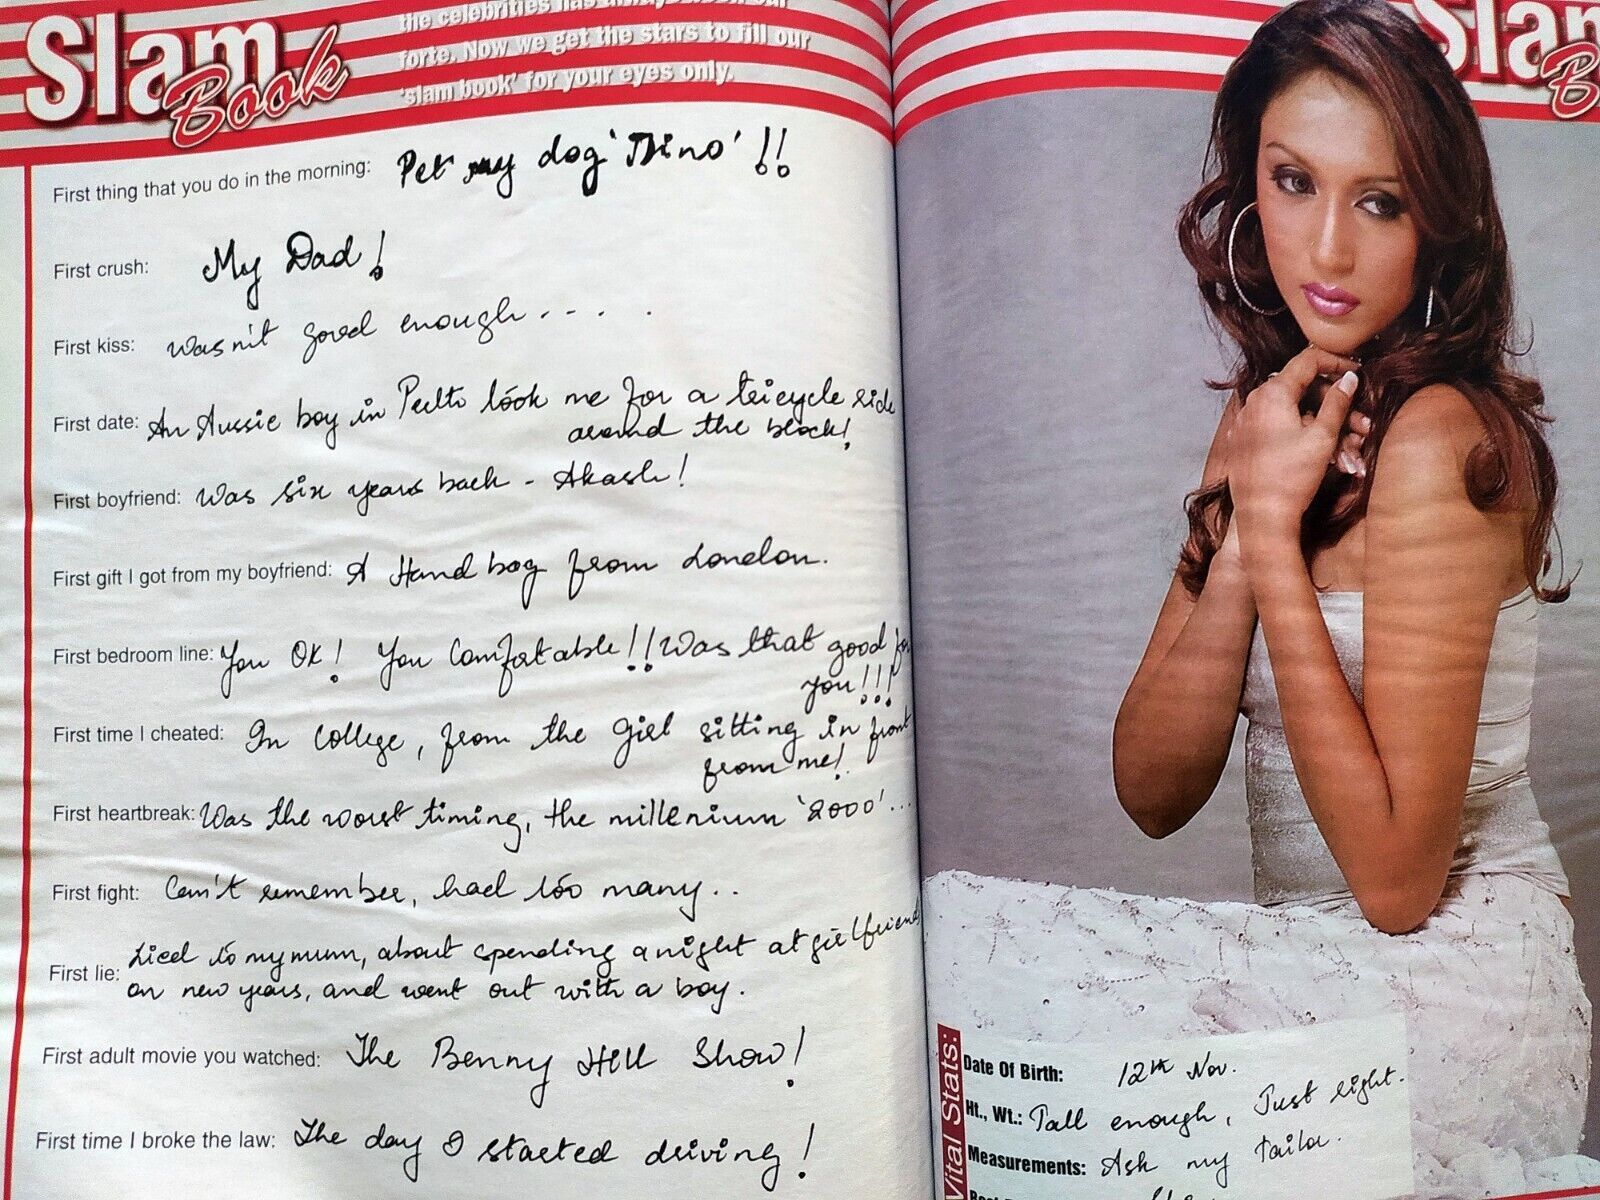 Slam
Book
the celebrities has always been our
forte. Now we get the stars to fill our
'slam book' for your eyes only.
First thing that you do in the morning: Pet my dog 'Dino' !!
First crush: My Dad!
First kiss: Wasn't good enough . . . .
First date: An Aussie boy in Perth took me for a tricycle ride
around the block!
First boyfriend: Was six years back - Akash!
First gift I got from my boyfriend: A Hand bag from London.
First bedroom line: You OK! You Comfortable!! Was that good for
you!!!
First time I cheated: In College, from the girl sitting in front
from me!
First heartbreak: Was the worst timing, the millenium '2000'...
First fight: Can't remember, had too many..
First lie: Lied to my mum, about spending a night at girlfriend
on new years, and went out with a boy.
First adult movie you watched: The Benny Hill Show!
First time I broke the law: The day I started driving!
Slam
B
Vital Stats:
Date Of Birth: 12th Nov.
Ht., Wt.: Tall enough, Just right.
Measurements: Ask my Tailor.